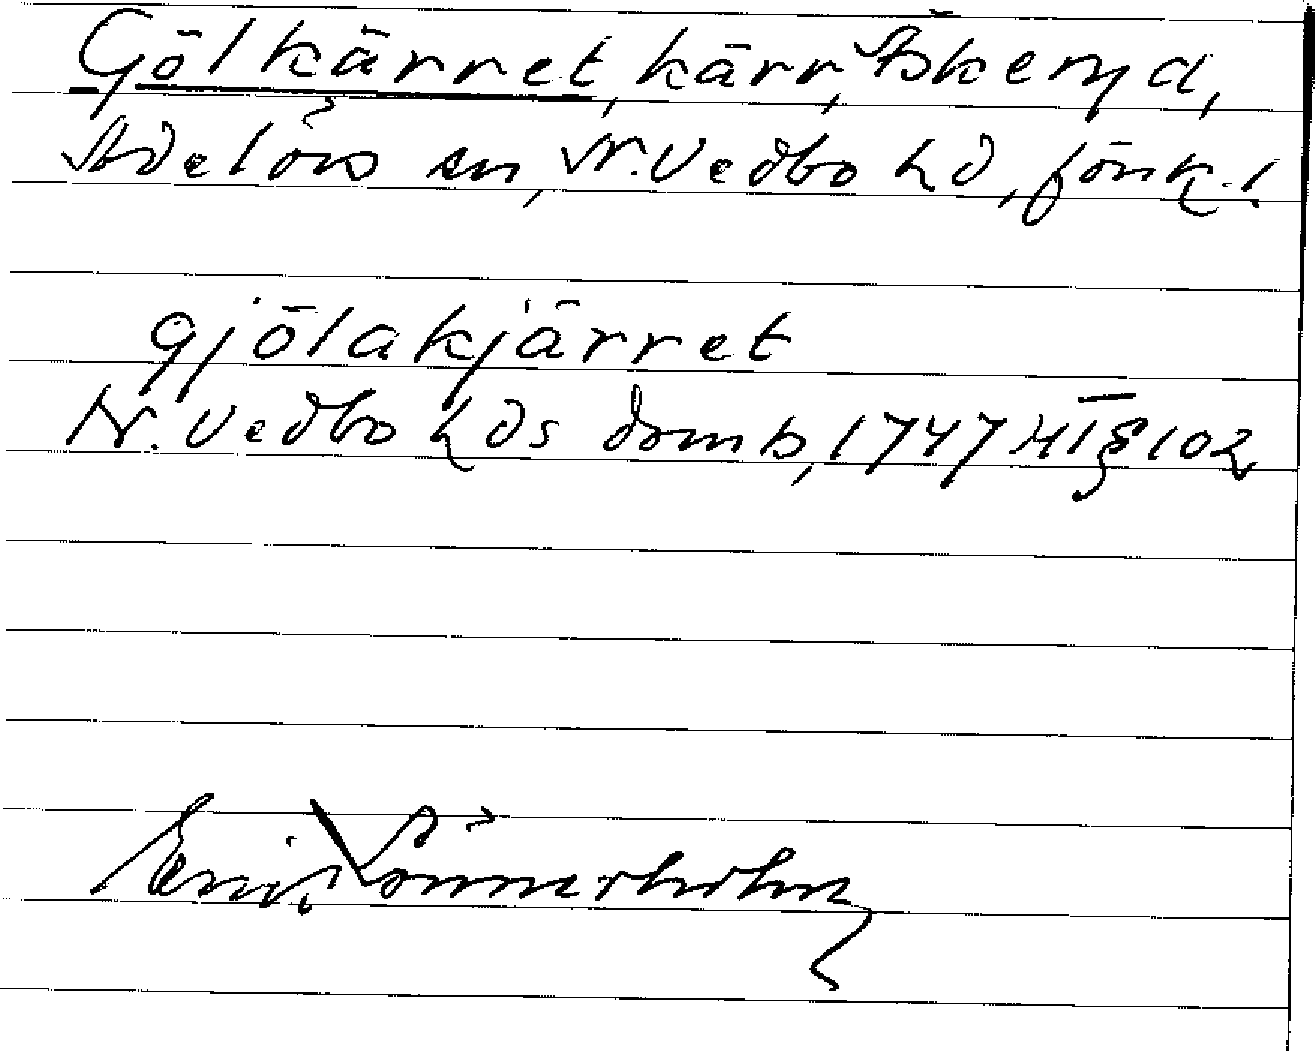 Gölkärret, kärr, Askeryd,
Adelövs sn, N. Vedbo hd, Jönk. l
gjölakjärret
N. Vedbo hds domb, 1747 HT § 102
Erik Lönnerholm